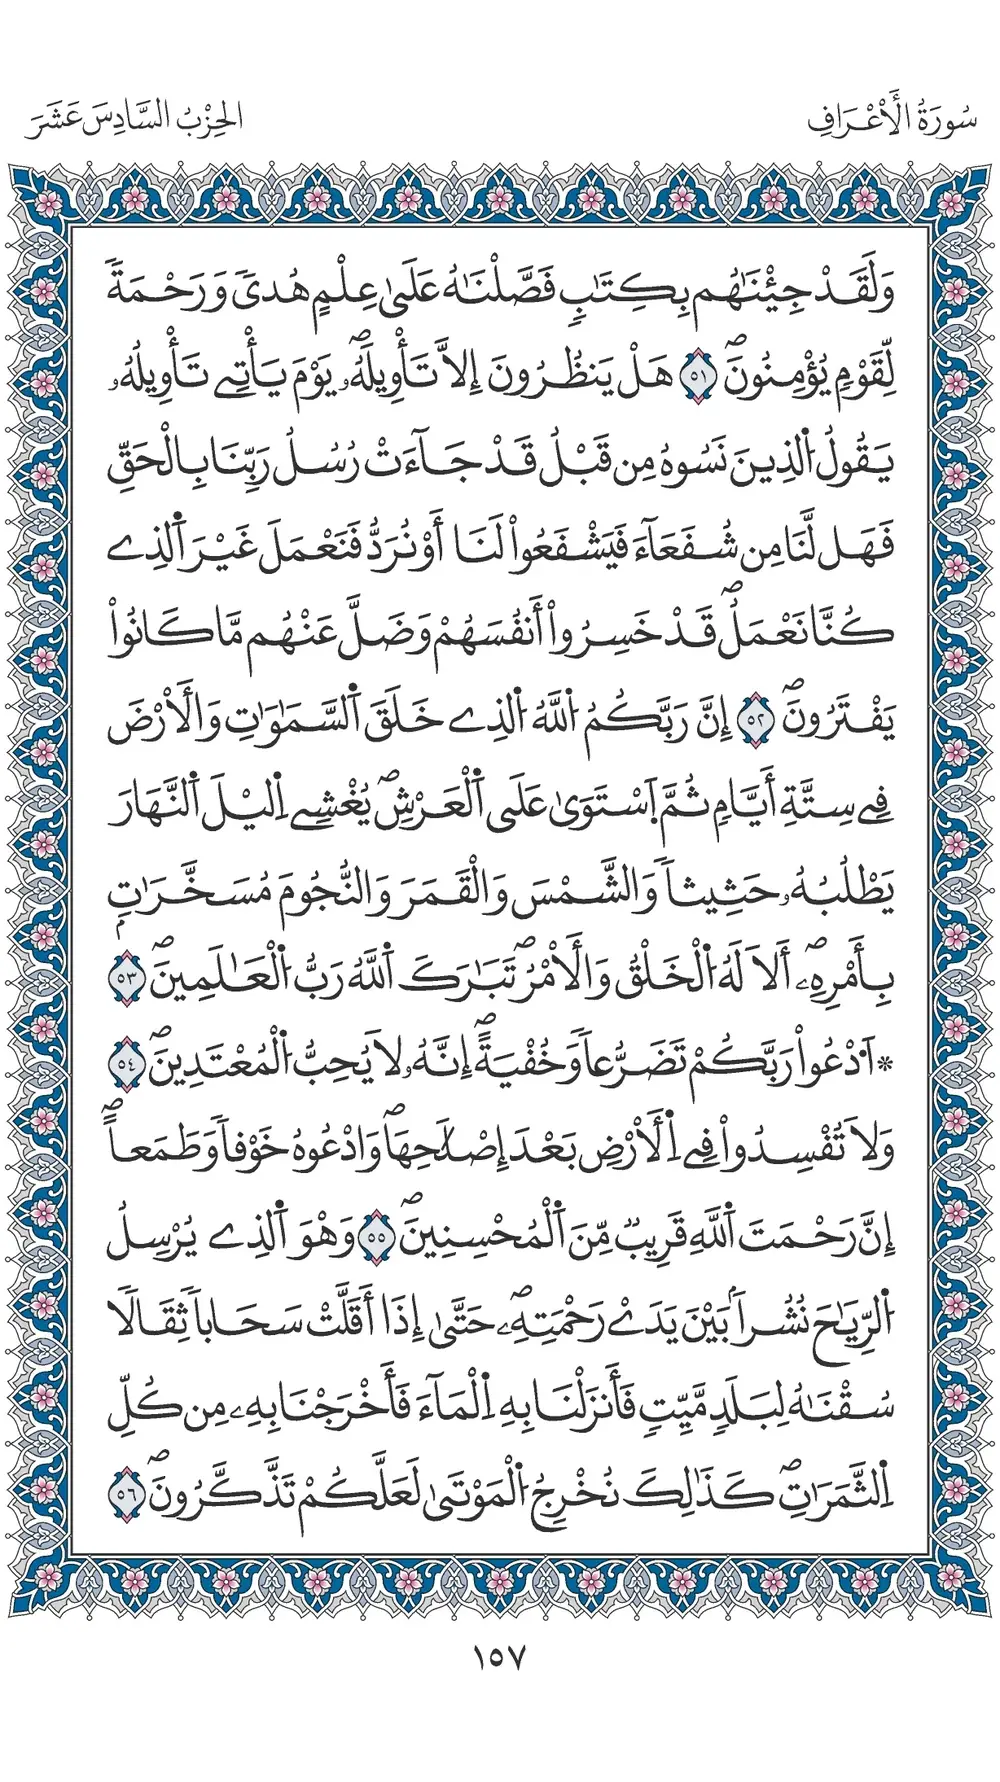 سُورَةُ الْأَعْرَافِ
الحِزْبُ السَّادِسَ عَشَرَ
وَلَقَدْ جِئْنَٰهُم بِكِتَٰبٖ فَصَّلْنَٰهُ عَلَىٰ عِلْمٍ هُدىٗ وَرَحْمَةٗ
لِّقَوْمٖ يُؤْمِنُونَۖ ٥١ هَلْ يَنظُرُونَ إِلَّا تَأْوِيلَهُۥۖ يَوْمَ يَأْتِے تَأْوِيلُهُۥ
يَقُولُ اُ۬لذِينَ نَسُوهُ مِن قَبْلُ قَدْ جَآءَتْ رُسُلُ رَبِّنَا بِالْحَقِّ
فَهَل لَّنَا مِن شُفَعَآءَ فَيَشْفَعُواْ لَنَا أَوْ نُرَدُّ فَنَعْمَلَ غَيْرَ اَ۬لذِے
كُنَّا نَعْمَلُۖ قَدْ خَسِرُواْ أَنفُسَهُمْ وَضَلَّ عَنْهُم مَّا كَانُواْ
يَفْتَرُونَۖ ٥٢ إِنَّ رَبَّكُمُ اُ۬للَّهُ اُ۬لذِے خَلَقَ اَ۬لسَّمَٰوَٰتِ وَالْأَرْضَ
فِے سِتَّةِ أَيَّامٖ ثُمَّ اَ۪سْتَوَىٰ عَلَى اَ۬لْعَرْشِۖ يُغْشِے اِ۬ليْلَ اَ۬لنَّهَارَ
يَطْلُبُهُۥ حَثِيثاٗ وَالشَّمْسَ وَالْقَمَرَ وَالنُّجُومَ مُسَخَّرَٰتِۢ
بِأَمْرِهِۦۖ أَلَا لَهُ اُ۬لْخَلْقُ وَالْأَمْرُۖ تَبَٰرَكَ اَ۬للَّهُ رَبُّ اُ۬لْعَٰلَمِينَۖ ٥٣
* اَ۟دْعُواْ رَبَّكُمْ تَضَرُّعاٗ وَخُفْيَةًۖ إِنَّهُۥ لَا يُحِبُّ اُ۬لْمُعْتَدِينَۖ ٥٤
وَلَا تُفْسِدُواْ فِے اِ۬لْأَرْضِ بَعْدَ إِصْلَٰحِهَاۖ وَادْعُوهُ خَوْفاٗ وَطَمَعاًۖ
إِنَّ رَحْمَتَ اَ۬للَّهِ قَرِيبٞ مِّنَ اَ۬لْمُحْسِنِينَۖ ٥٥ وَهُوَ اَ۬لذِے يُرْسِلُ
اُ۬لرِّيَٰحَ نُشُراَۢ بَيْنَ يَدَےْ رَحْمَتِهِۦۖ حَتَّىٰ إِذَا أَقَلَّتْ سَحَاباٗ ثِقَالاٗ
سُقْنَٰهُ لِبَلَدٖ مَّيِّتٖ فَأَنزَلْنَا بِهِ اِ۬لْمَآءَ فَأَخْرَجْنَا بِهِۦ مِن كُلِّ
اِ۬لثَّمَرَٰتِۖ كَذَٰلِكَ نُخْرِجُ اُ۬لْمَوْتَىٰ لَعَلَّكُمْ تَذَّكَّرُونَۖ ٥٦
١٥٧